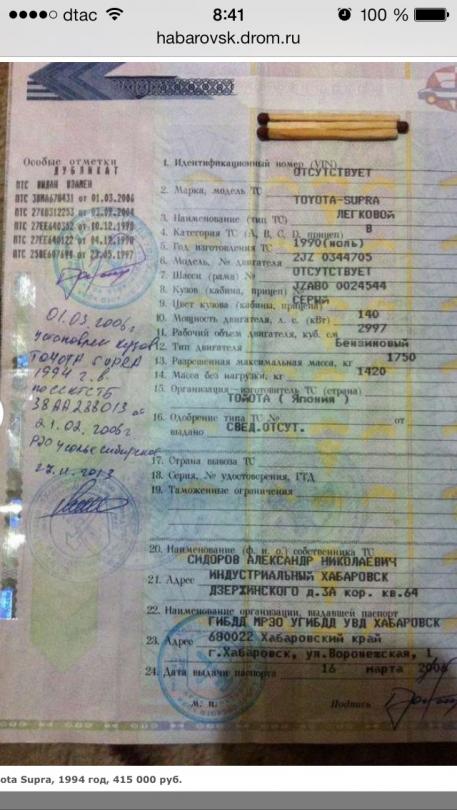 dtac
8:41
100 %
habarovsk.drom.ru
Особые отметки
ДУБЛИКАТ
ПТС ВЫДАН ВЗАМЕН
от 01.03.2006
01.03.2006г
установлен кузов
1994 г.в.
38АА288013 от
21.02.2006г
27.11.2013
1. Идентификационный номер (VIN) ОТСУТСТВУЕТ
2. Марка, модель ТС TOYOTA-SUPRA
3. Наименование (тип ТС) ЛЕГКОВОЙ
4. Категория ТС (А, В, С, D, прицеп) В
5. Год изготовления ТС 1990(ноль)
6. Модель, № двигателя 2JZ 0344705
7. Шасси (рама) № ОТСУТСТВУЕТ
8. Кузов (кабина, прицеп) № JZA80 0024544
9. Цвет кузова (кабины, прицепа) СЕРЫЙ
10. Мощность двигателя, л. с. (кВт) 140
11. Рабочий объем двигателя, куб. см 2997
12. Тип двигателя Бензиновый
13. Разрешенная максимальная масса, кг 1750
14. Масса без нагрузки, кг 1420
15. Организация-изготовитель ТС (страна)
ТОЙОТА ( Япония )
16. Одобрение типа ТС № от
выдано СВЕД.ОТСУТ.
17. Страна вывоза ТС
18. Серия, № удостоверения, ГТД
19. Таможенные ограничения
20. Наименование (ф. и. о.) собственника ТС
СИДОРОВ АЛЕКСАНДР НИКОЛАЕВИЧ
21. Адрес ИНДУСТРИАЛЬНЫЙ ХАБАРОВСК
ДЗЕРЖИНСКОГО д.3А кор. кв.64
22. Наименование организации, выдавшей паспорт
ГИБДД МРЭО УГИБДД УВД ХАБАРОВСК
23. Адрес 680022 Хабаровский край
г.Хабаровск, ул.Воронежская, 1,
24. Дата выдачи паспорта 16 марта 2006
М. П. Подпись
ota Supra, 1994 год, 415 000 руб.